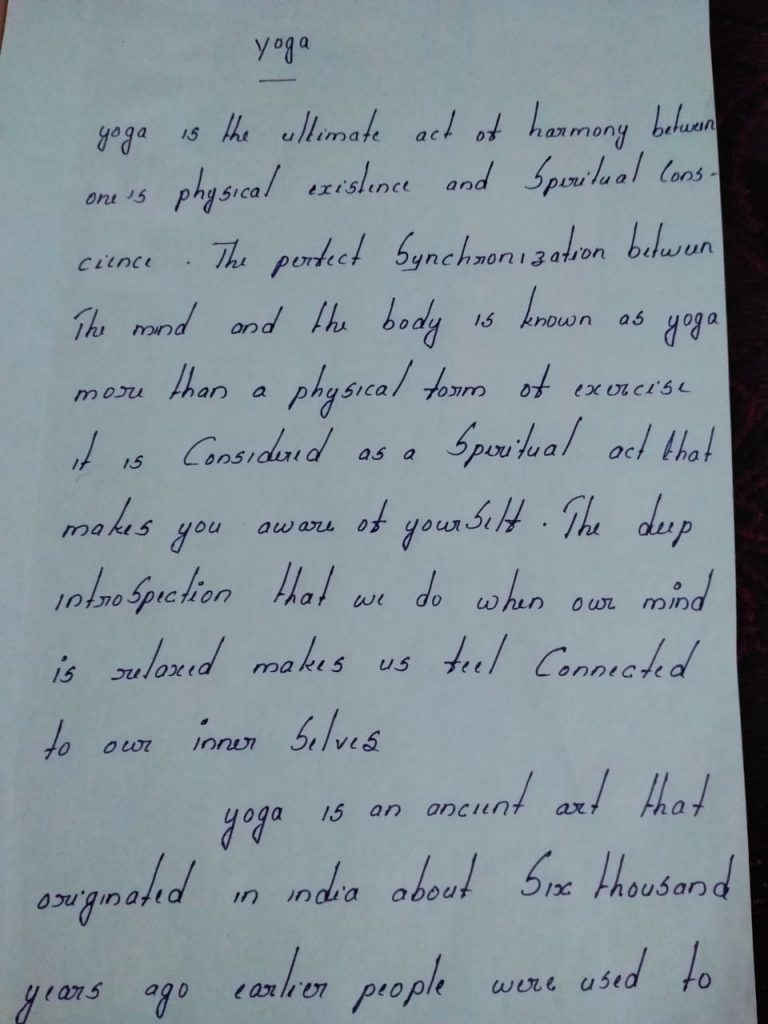 yoga
yoga is the ultimate act of harmony between
one's physical existence and Spiritual Cons-
cience. The perfect Synchronization between
The mind and the body is known as yoga
more than a physical form of exercise
it is Considered as a Spiritual act that
makes you aware of yourSelf. The deep
introSpection that we do when our mind
is relaxed makes us feel Connected
to our inner Selves
yoga is an ancient art that
originated in india about Six thousand
years ago earlier people were used to